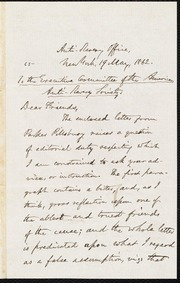 Anti-Slavery Office,
New York, 19 May, 1862.
To the Executive Committee of the American
Anti-Slavery Society:
Dear Friends,
The enclosed letter from
Parker Pillsbury raises a question
of editorial duty respecting which
I am constrained to ask your ad-
vice, or instruction. The first para-
graph contains a bitter, and, as I
think, gross reflection upon one of
the ablest and truest friends
of the cause; and the whole letter
is predicated upon what I regard
as a false assumption, viz: that